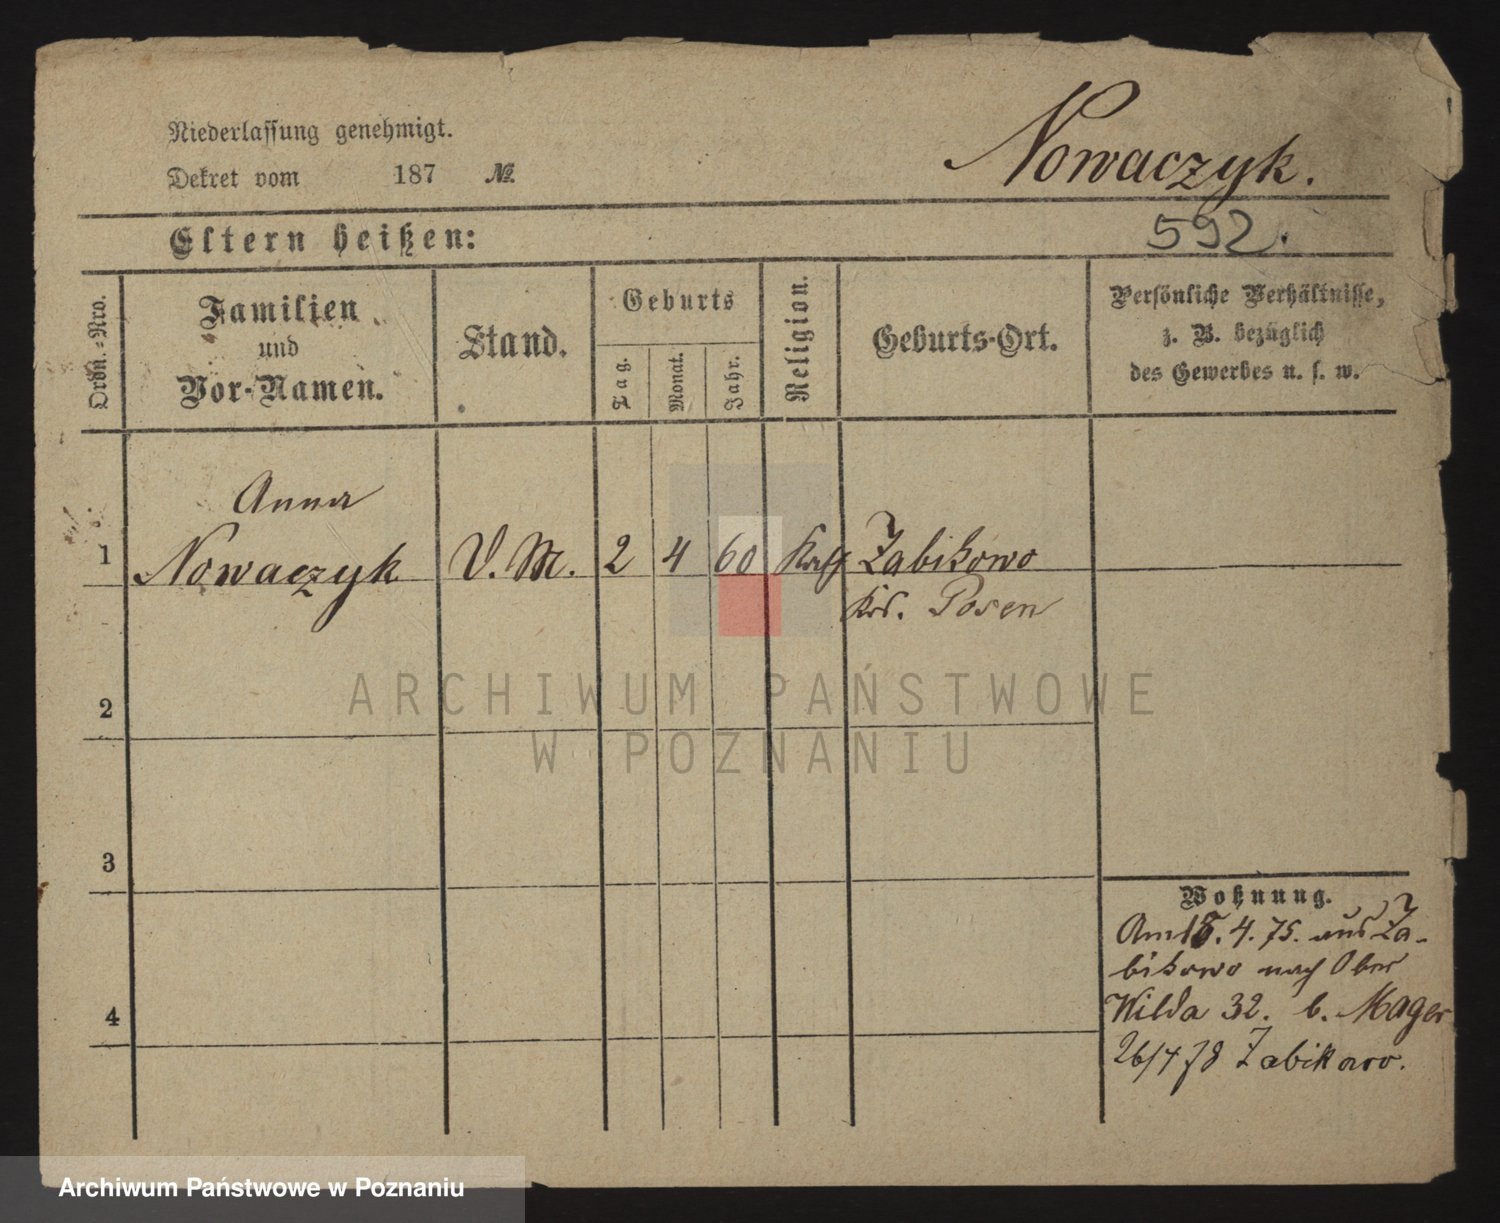 Niederlassung genehmigt.
Dekret vom 187 №
Nowaczyk.
592.
Eltern heißen:
Ordn.-Nro.
Familien
und
Vor-Namen.
Stand.
Geburts
Tag.
Monat.
Jahr.
Religion.
Geburts-Ort.
Persönliche Verhältnisse,
z. B. bezüglich
des Gewerbes u. s. w.
Anna
1 Nowaczyk D. M. 2 4 60 Kath Zabikowo
Krs. Posen
2
3
4
Wohnung.
Am 15. 4. 75. aus Za-
bikowo nach Ober
Wilda 32. b. Mager
26/4 78 Zabikowo.
ARCHIWUM PAŃSTWOWE
W POZNANIU
Archiwum Państwowe w Poznaniu